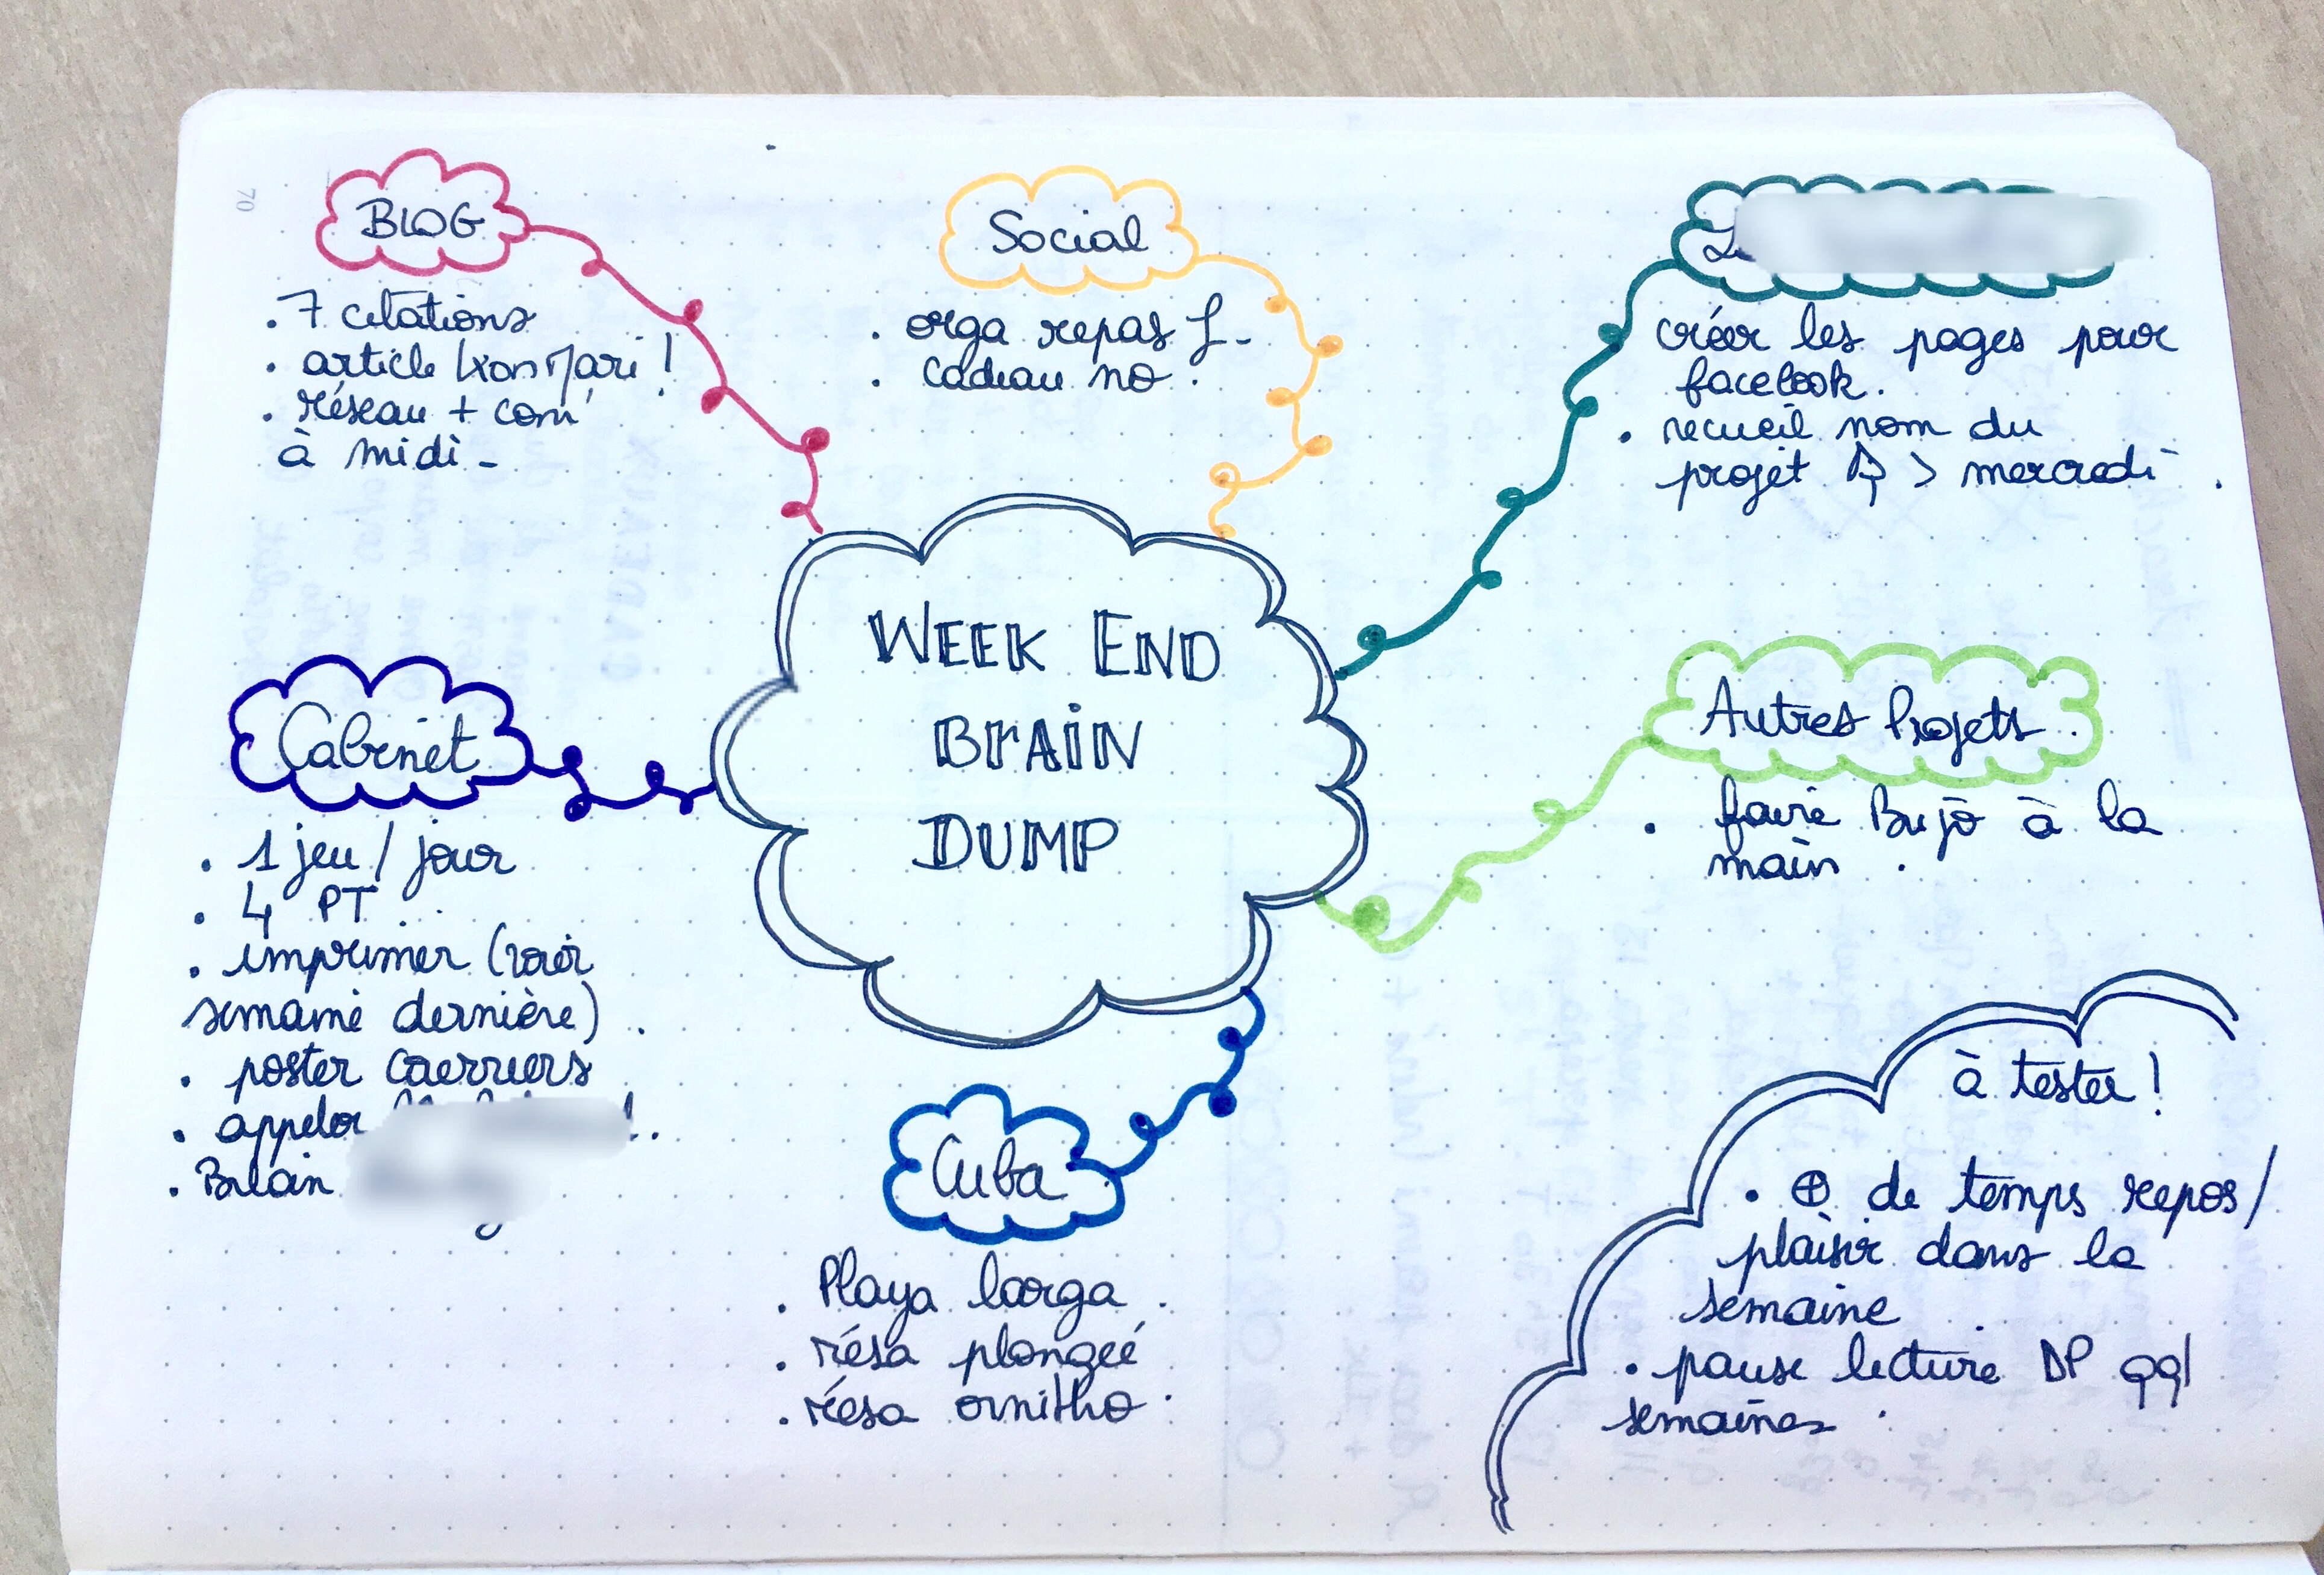 70
BLOG
. 7 citations
. article KonMari !
. réseau + com'
à midi -
Social
. orga repas L -
. cadeau no .
créer les pages pour
facebook.
. recueil nom du
projet > mercredi .
WEEK END
BRAIN
DUMP
Cabinet
. 1 jeu / jour
. 4 PT
. imprimer (voir
semaine dernière) .
. poster courriers
. appeler
. Bilan
Autres Projets .
. faire Bujo à la
main .
Cuba
. Playa larga .
. résa plongée
. résa ornitho .
à tester !
. ⊕ de temps repos /
plaisir dans la
semaine
. pause lecture DP qql
semaines .